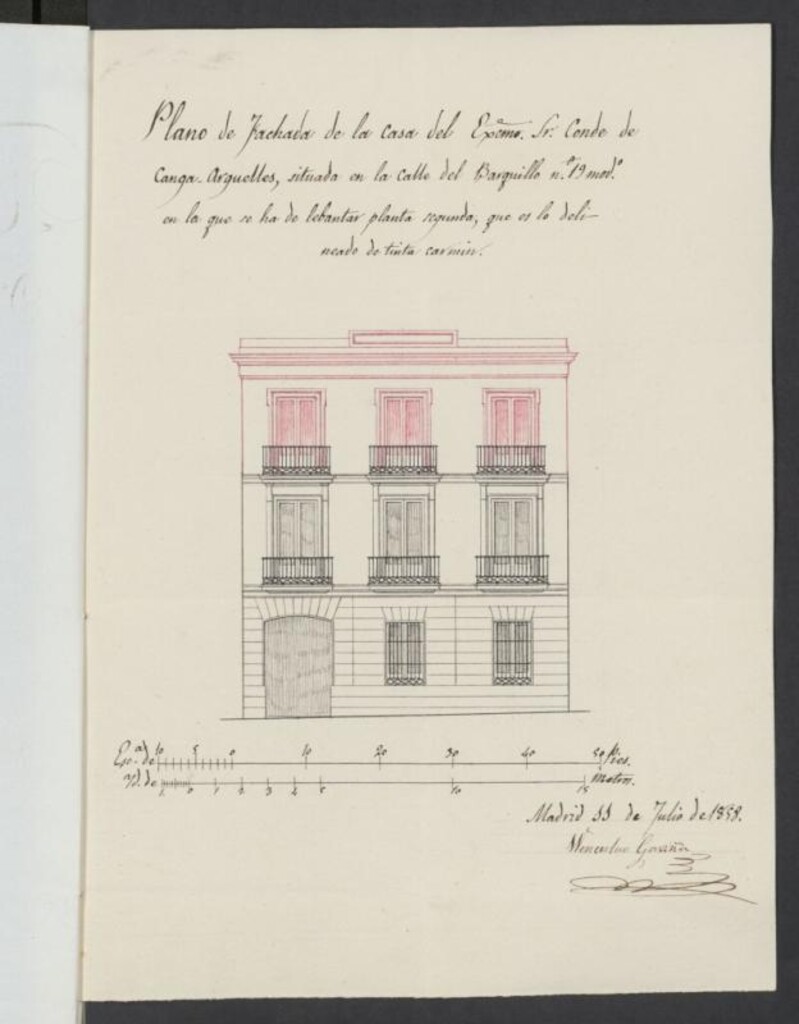 Plano de Fachada de la casa del Excmo. Sr. Conde de
Canga-Arguelles, situada en la calle del Barquillo n.º 19 mod.º
en la que se ha de lebantar planta segunda, que es lo deli-
neado de tinta carmin.
Esc.ª de 10 5 0 10 20 30 40 50 Pies.
Yd. de 1 0 1 2 3 4 5 10 15 metros.
Madrid 11 de Julio de 1858.
Wenceslao Gaviña